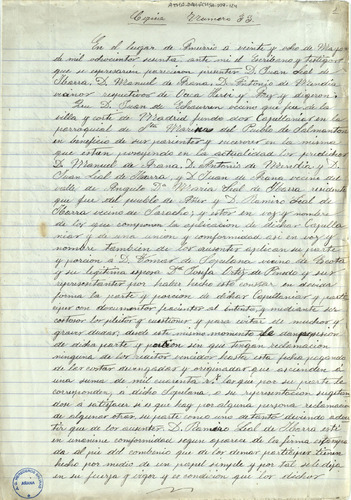 Copia Numero 33
En el lugar de Amurrio a veinte y ocho de Mayo
de mil ochocientos sesenta ante mi el Escribano y testigos
que se espresaran parecieron presentes D. Juan Leal de
Ibarra, D. Manuel de Arana, D. Antonio de Mendia
vecinos respectivos de Oraa
y digeron:
Que D. Juan de vecino que fue de la
villa y corte de Madrid fundó dos Capellanias en la
parroquial de Sta. Marina del Pueblo de
en beneficio de sus parientes y sucesores en la misma
que estan poseyendo en la actualidad los predichos
D. Manuel de Arana, D. Antonio de Mendia, y D.
Juan Leal de Ibarra, y D. Juan de Arana vecino del
valle de Angulo Dª Maria Leal de Ibarra residente
que fue del pueblo de y D. Ramiro Leal de
Ibarra vecino de Saracho; y estos en voz y nombre
de los que componen la aplicacion de dichas Capella-
nias y de una union y conformidad asi en voz y
nombre tambien de los ausentes aplican su parte
y porcion á D. Tomas de vecino de
y su legitima esposa Dª Ortiz de Pinedo y sus
representantes por haber hecho este constar en devida
forma la parte y porcion de dichas Capellanias y parte
que con documentos al intento y mediante ser
costosos los pleitos y cuestiones y para evitar de muchos y
graves dudas, desde este mismo momento
de dicha parte y porcion sin que tengan reclamacion
ninguna de los reditos vencidos hasta esta fecha pagando
de las costas devengadas y originadas que ascienden á
una suma de mil cuarenta rs. los que por su parte le
corresponden, á dicho o su representacion, sugetan-
dose á satisfacer si es que hay por alguna persona reclamacion
de algunos otros, su parte como es de tanto deviendo adver-
tir que de los ausentes D. Ramiro Leal de Ibarra está
en unanime conformidad segun aparece de la firma estampa-
da al pie del combenio que de los demas participes tienen
hecho por medio de un papel simple y por tal se le deja
en su fuerza y vigor y es condicion que los dichos
ALAVA